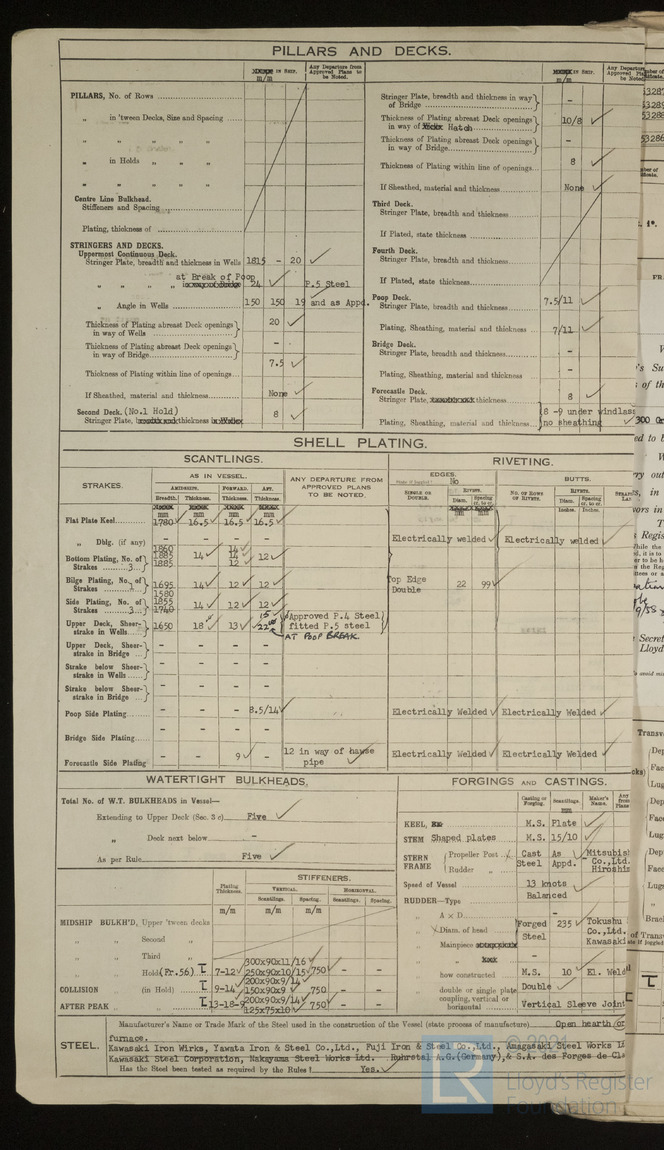 PILLARS AND DECKS.
IN SHIP. m/m
Any Departure from Approved Plans to be Noted.
PILLARS, No. of Rows
„ in 'tween Decks, Size and Spacing
„ „ „ „ „
„ in Holds „ „
„ „ „ „
Centre Line Bulkhead.
Stiffeners and Spacing
Plating, thickness of
STRINGERS AND DECKS.
Uppermost Continuous Deck.
Stringer Plate, breadth and thickness in Wells 1815 - 20 ✓
at Break of Poop
„ „ „ „ in way of Bridge 24 ✓ P.5 Steel
„ Angle in Wells 150 150 19 and as Appd.
Thickness of Plating abreast Deck openings in way of Wells 20 ✓
Thickness of Plating abreast Deck openings in way of Bridge -
Thickness of Plating within line of openings 7.5 ✓
If Sheathed, material and thickness None ✓
Second Deck. (No.1 Hold)
Stringer Plate, breadth and thickness in Wells 8 ✓
IN SHIP. m/m
Stringer Plate, breadth and thickness in way of Bridge -
Thickness of Plating abreast Deck openings in way of Hatch 10/8 ✓
Thickness of Plating abreast Deck openings in way of Bridge -
Thickness of Plating within line of openings 8 ✓
If Sheathed, material and thickness None ✓
Third Deck.
Stringer Plate, breadth and thickness
If Plated, state thickness
Fourth Deck.
Stringer Plate, breadth and thickness
If Plated, state thickness
Poop Deck.
Stringer Plate, breadth and thickness 7.5/11 ✓
Plating, Sheathing, material and thickness 7/11 ✓
Bridge Deck.
Stringer Plate, breadth and thickness -
Plating, Sheathing, material and thickness -
Forecastle Deck.
Stringer Plate, thickness 8 ✓
Plating, Sheathing, material and thickness 8 -9 under windlass
no sheathing ✓
SHELL PLATING.
SCANTLINGS.
RIVETING.
STRAKES.
AS IN VESSEL.
ANY DEPARTURE FROM APPROVED PLANS TO BE NOTED.
EDGES. No
BUTTS.
AMIDSHIPS. FORWARD. AFT.
SINGLE OR DOUBLE.
RIVETS.
NO. OF ROWS OF RIVETS.
RIVETS.
Breadth. Thickness. Thickness. Thickness.
mm mm mm mm
Flat Plate Keel 1780 16.5 16.5 16.5
„ Dblg. (if any) - - - -
Electrically welded ✓ Electrically welded ✓
Bottom Plating, No. of Strakes 3 1860 1885 1885 14 14 12 12
Bilge Plating, No. of Strakes 1695 14 12 12
Top Edge Double 22 99
Side Plating, No. of Strakes 3 1580 1855 1740 14 12 12
Upper Deck, Sheerstrake in Wells 1650 18 13 22
Approved P.4 Steel
fitted P.5 steel
AT POOP BREAK.
Upper Deck, Sheerstrake in Bridge - - - -
Strake below Sheerstrake in Wells - - - -
Strake below Sheerstrake in Bridge - - - -
Poop Side Plating - - - 8.5/14 ✓ Electrically Welded ✓ Electrically Welded ✓
Bridge Side Plating - - - -
Forecastle Side Plating - - 9 ✓ - 12 in way of hawse pipe ✓ Electrically Welded ✓ Electrically Welded ✓
WATERTIGHT BULKHEADS.
Total No. of W.T. BULKHEADS in Vessel—
Extending to Upper Deck (Sec. 3 c) Five ✓
„ Deck next below -
As per Rule Five ✓
STIFFENERS.
Plating Thickness.
VERTICAL. HORIZONTAL.
Scantlings. Spacing. Scantlings. Spacing.
m/m m/m m/m
MIDSHIP BULKH'D, Upper 'tween decks
„ „ Second „
„ „ Third „
„ „ Hold (Fr.56) 7-12 300x90x11/16 250x90x10/15 750 - -
COLLISION „ (in Hold) 9-14 200x90x9/14 150x90x9 750 - -
AFTER PEAK „ „ 13-18-9 200x90x9/14 125x75x10 750 - -
FORGINGS AND CASTINGS.
Casting or Forging. Scantlings. mm Maker's Name.
KEEL, M.S. Plate ✓
STEM Shaped plates M.S. 15/10 ✓
STERN FRAME
Propeller Post Cast As Mitsubish
Rudder „ Steel Appd. Co.,Ltd. Hiroshi
Speed of Vessel 13 knots ✓
RUDDER—Type Balanced
„ A x D -
„ Diam. of head Forged Steel 235 ✓ Tokushu
Co.,Ltd.
„ Mainpiece Kawasaki
„ how constructed M.S. 10 El. Weld
„ double or single plate Double ✓
„ coupling, vertical or horizontal Vertical Sleeve Joint
STEEL.
Manufacturer's Name or Trade Mark of the Steel used in the construction of the Vessel (state process of manufacture) Open hearth
furnace.
Kawasaki Iron Wirks, Yawata Iron & Steel Co.,Ltd., Fuji Iron & Steel Co.,Ltd., Amagasaki Steel Works
Kawasaki Steel Corporation, Nakayama Steel Works Ltd. Ruhrstal A.G.(Germany),& S.A. des Forges de
Has the Steel been tested as required by the Rules? Yes. ✓
© 2021
LR
Lloyd's Register
Foundation